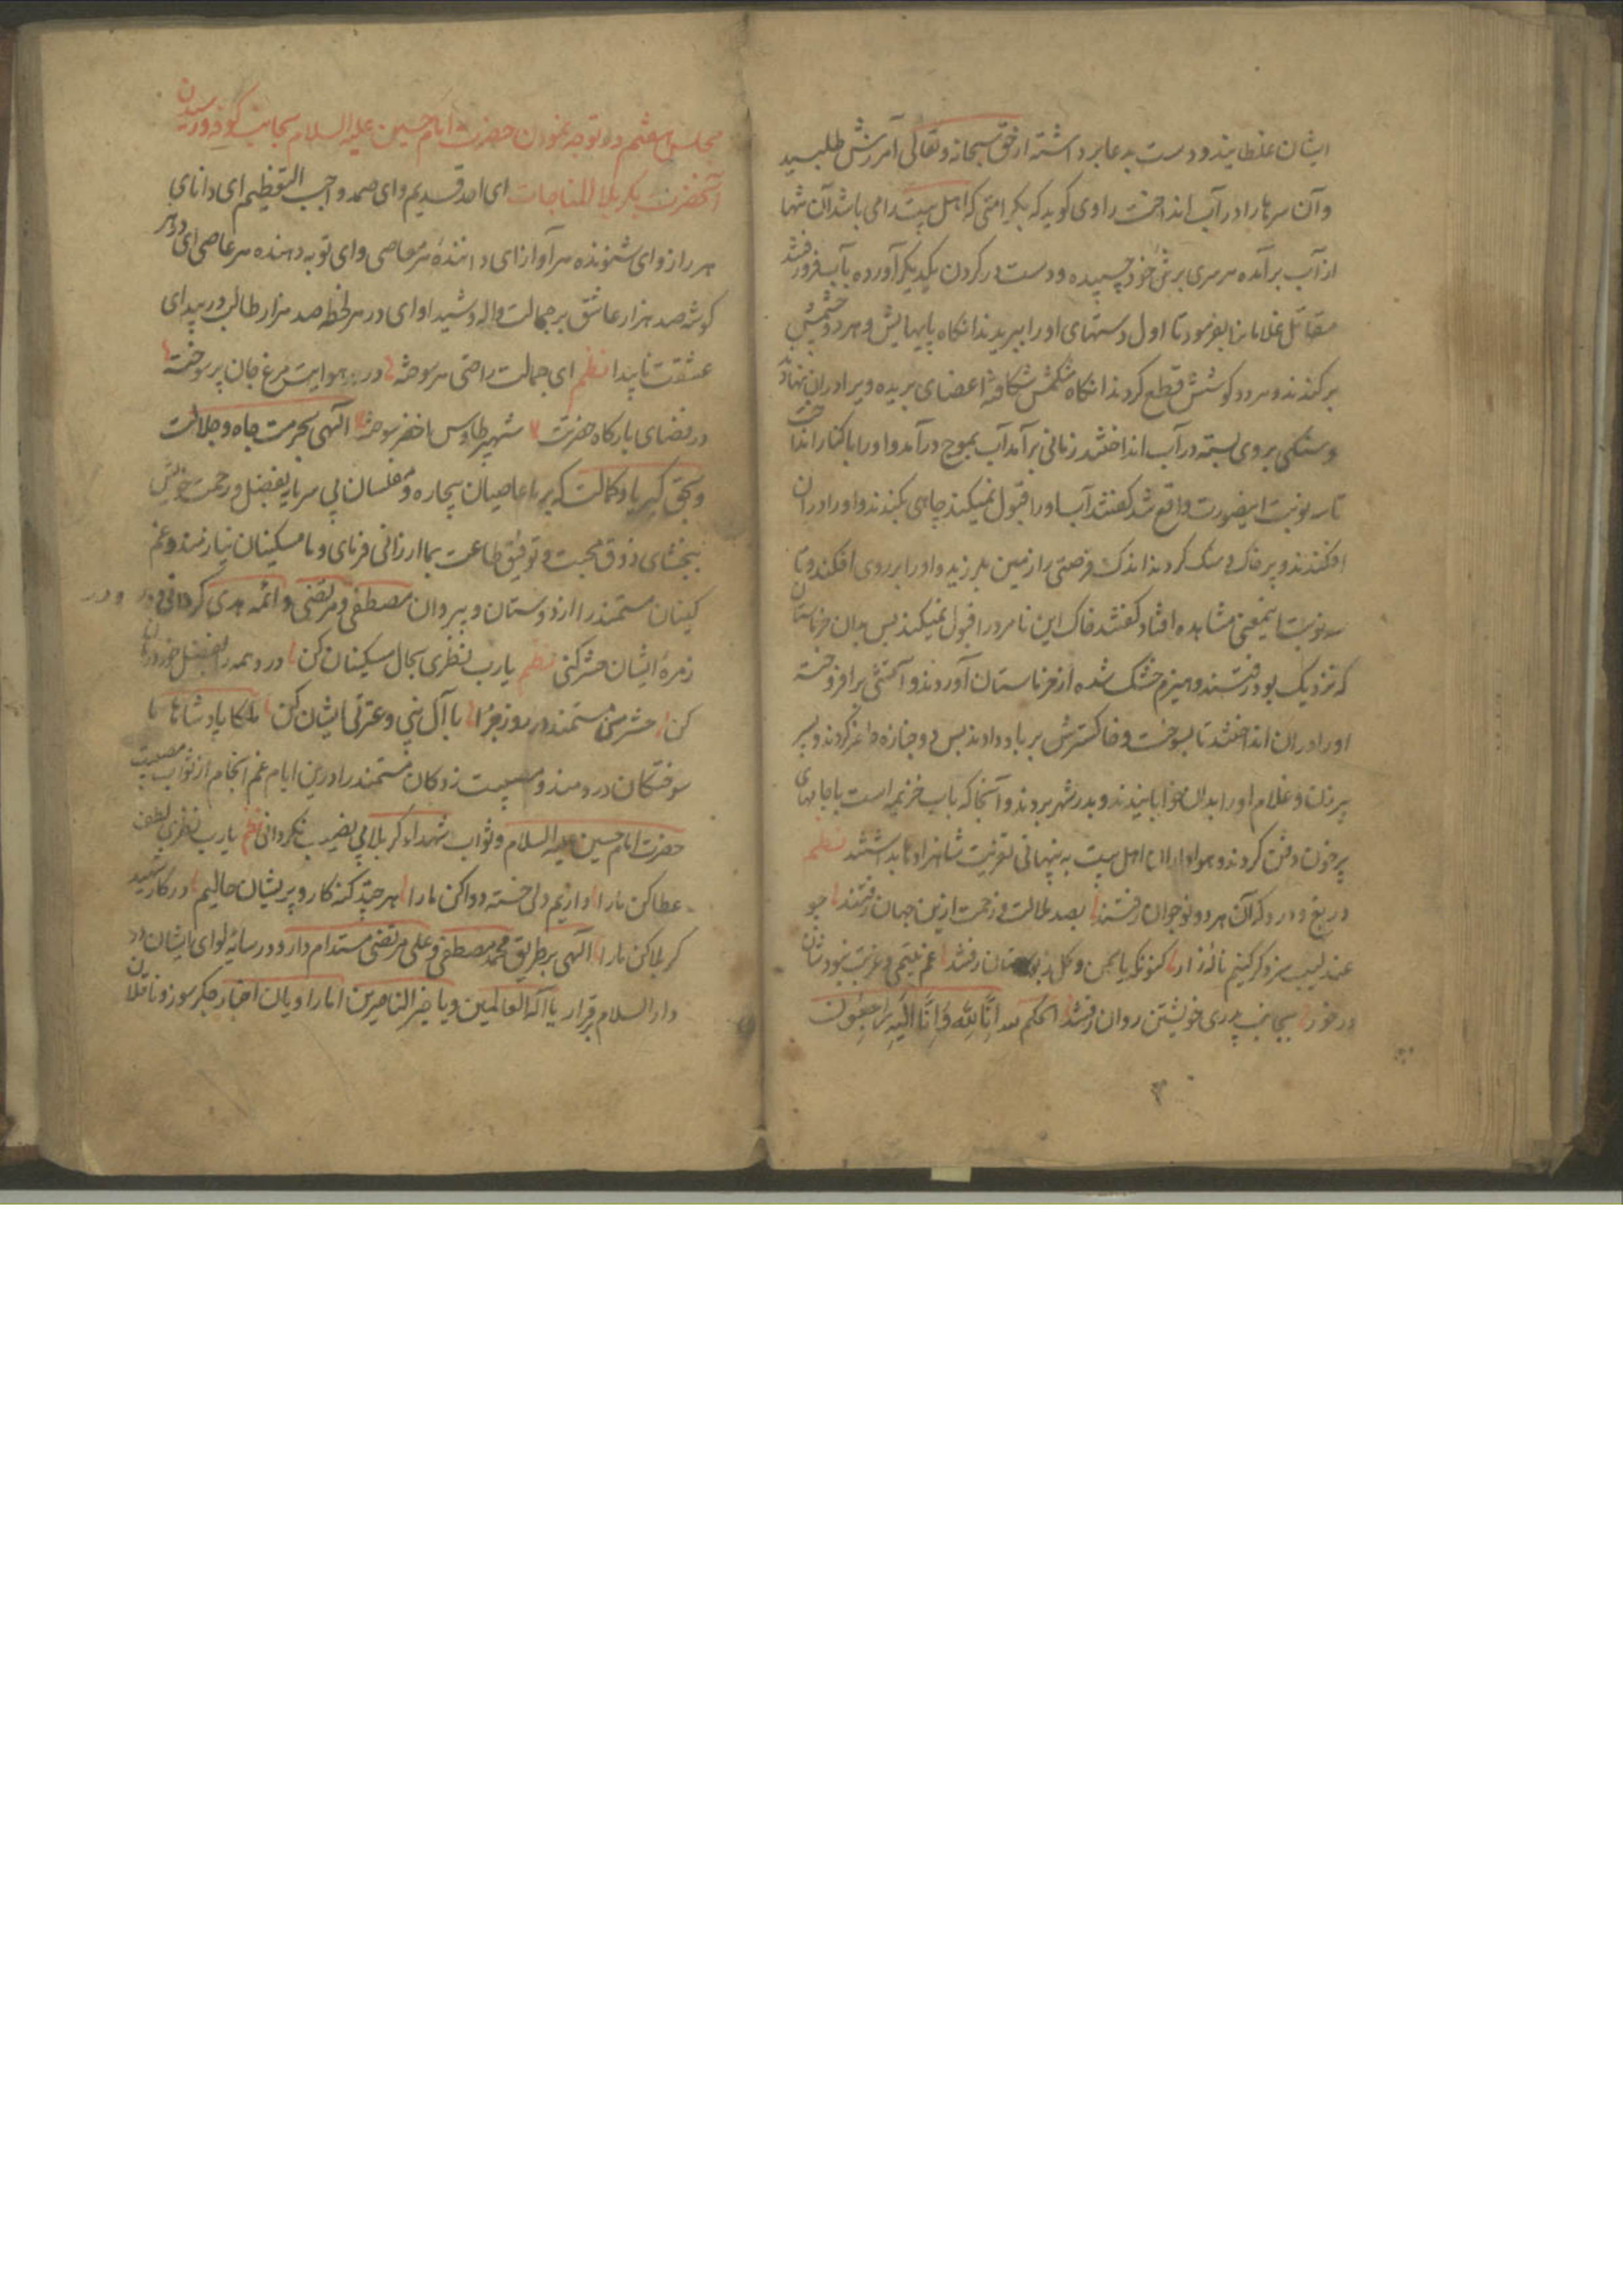 ایشان غلطانیدند و دست بدعا برداشته از حق سبحانه و تعالی آمرزش طلبید
و آن سرها را در آب انداخت راوی گوید که بکرامتی که اهل بیت را می باشد آن تنها
از آب برآمده هر سری بر تن خود چسپیده و دست در گردن یکدیگر آورده بآب فرو رفتند
مقاتل غلامانرا بفرمود تا اول دستهای او را ببریدند انگاه پایهایش و هر دو چشمش
برکندند و هر دو گوشش قطع کردند انگاه شکمش شکافته اعضای بریده ویرا در آن نهاد
و سنگی بر وی بسته در آب انداختند زمانی برآمد آب بموج درآمد و او را با کنار انداخت
تا سه نوبت اینصورت واقع شد گفتند آب او را قبول نمیکند چاهی بکندند و او را در آن
افکندند و پر خاک و سنگ کردند اندک فرصتی را زمین بلرزید و او را بر روی افکند و تا
سه نوبت اینمعنی مشاهده افتاد گفتند خاک این نامرد را قبول نمیکند پس بدان خرماستان
که نزدیک بود رفتند و هیزم خشک شده از خرماستان آوردند و آتشی برافروخته
او را در آن انداختند تا بسوخت و خاکسترش بر باد دادند پس دو جنازه حاضر کردند و پسر
پیر زن و غلام او را بدان خوابانیدند و بدر شهر بردند و آنجا که باب خزیمه است با جامهای
پر خون دفن کردند و هواداران اهل بیت به پنهانی تعزیت شاهزادها بداشتند نظم
دریغ و درد که آن هر دو نوجوان رفتند بصد ملالت و زحمت ازین جهان رفتند چو
عندلیب سزد گر کنیم ناله زار کنونکه یاسمن و گل ز بوستان رفتند غم یتیمی و غربت نبود شان
در خور بجانب پدری خویشتن روان رفتند الحکم لله انا لله و انا الیه راجعون
مجلس هفتم در توجه نمودن حضرت امام حسین علیه السلام بجانب کوفه و رسیدن
آنحضرت بکربلا المناجات ای احد قدیم و ای صمد واجب التعظیم ای دانای
هر راز و ای شنونده هر آواز ای داننده هر معاصی و ای توبه دهنده هر عاصی ای در هر
گوشه صد هزار عاشق بر جمالت واله و شیدا و ای در هر لحظه صد هزار طالب در بیدای
عشقت ناپیدا نظم ای جمالت راضی هر سوخته در هوایت مرغ جان پر سوخته
در فضای بارگاه حضرتت شهپر طاوس اخضر سوخته الهی بحرمت جاه و جلالت
و بحق کبریا و کمالت که بر ما عاصیان بیچاره و مفلسان بی سرمایه بفضل و رحمت خویش
ببخشای ذوق محبت و توفیق طاعت بما ارزانی فرمای و ما مسکینان نیازمند و غم
گینان مستمند را از دوستان و پیروان مصطفی و مرتضی و ائمه هدی گردانی و در
زمره ایشان حشر کنی نظم یا رب نظری بحال مسکینان کن درد همه را بفضل خود درمان
کن حشر من مستمند در روز جزا با آل نبی و عترتی ایشان کن ملکا پادشاها ما
سوختگان دردمند و مصیبت زدگان مستمند را درین ایام غم انجام از ثواب مصیبت
حضرت امام حسین علیه السلام و ثواب شهداء کربلا بی نصیب نگردانی نظم یا رب نظری بلطف
عطا کن ما را داریم دلی خسته دوا کن ما را هر چند گنه کار و پریشان حالیم در کار شهید
کربلا کن ما را الهی بر طریق محمد مصطفی و علی مرتضی مستدام دار و در سایه لوای ایشان در
دار السلام قرار یا اله العالمین و یا خیر الناصرین اما راویان اخبار جگر سوز و ناقلان